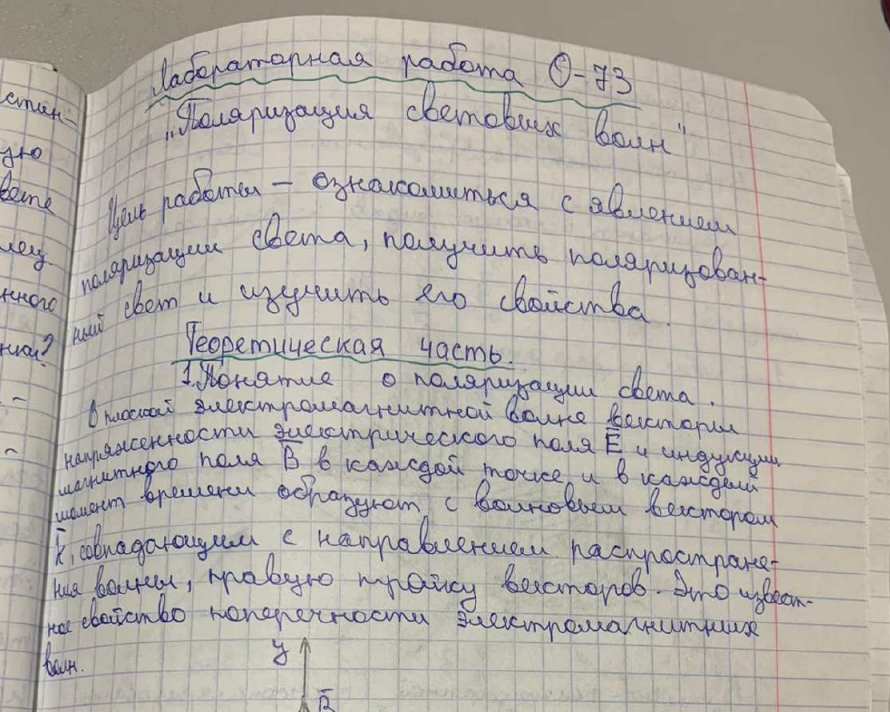 Лабораторная работа О-73
„Поляризация световых волн"
Цель работы – ознакомиться с явлением
поляризации света, получить поляризован-
ный свет и изучить его свойства.
Теоретическая часть.
1. Понятие о поляризации света.
В плоской электромагнитной волне векторы
напряженности электрического поля E̅ и индукции
магнитного поля B̅ в каждой точке и в каждый
момент времени образуют с волновым вектором
k̅, совпадающим с направлением распростране-
ния волны, правую тройку векторов. Это извест-
ное свойство поперечности электромагнитных
волн.
y
B̅
стин-
ую
нного